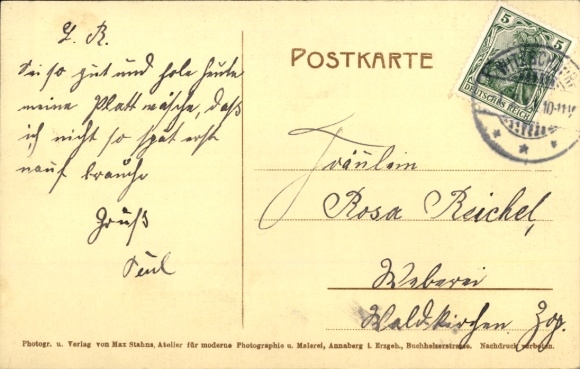 L. R.
Sei so gut und hole heute
meine Plattwäsche, daß
ich nicht so spät erst
nauf brauche
Gruß
POSTKARTE
5 5
DEUTSCHES REICH
10-11V
Fräulein
Rosa Reichel,
Weberei
Waldkirchen Zop.
Photogr. u. Verlag von Max Stahns, Atelier für moderne Photographie u. Malerei, Annaberg i. Erzgeb., Buchholzerstrasse. Nachdruck verboten.